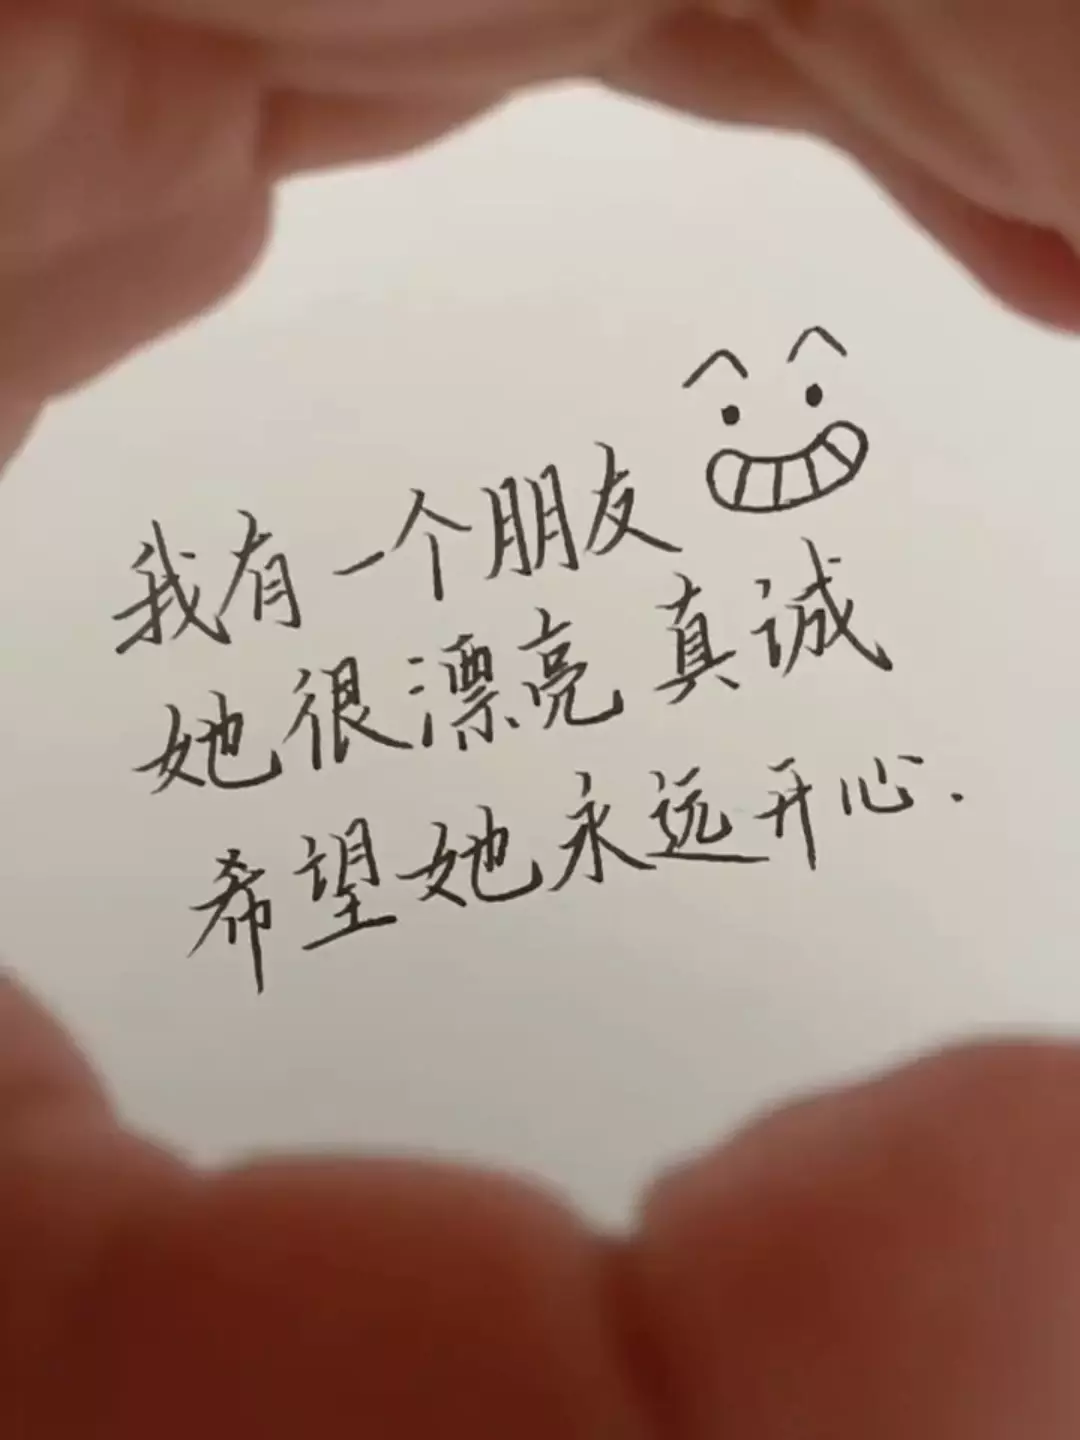 我有一个朋友
她很漂亮 真诚
希望她永远开心.